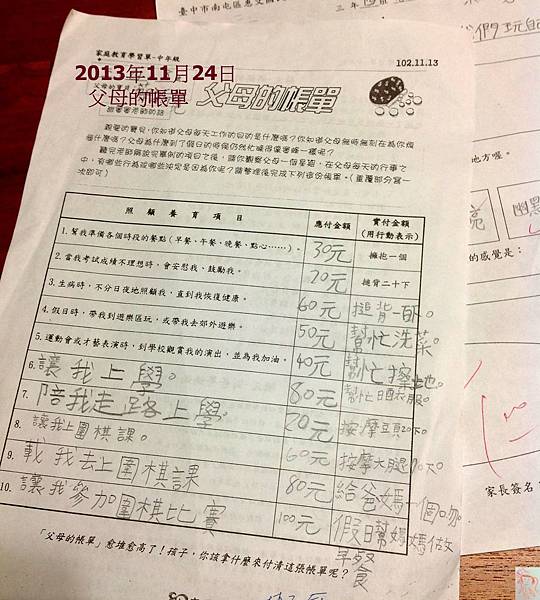 臺中市南屯區惠文國
三年
家庭教育學習單-中年級
102.11.13
2013年11月24日
父母的帳單
父母的帳單
親愛的寶貝，你知道父母每天工作的目的是什麼嗎？你知道父母無時無刻在為你煩
中，有哪些行為或者狀況是因為你呢？請整理後完成下列這份帳單。（重覆部分寫一
次即可）
照顧養育項目
應付金額
實付金額
（用行動表示）
1.幫我準備各個時段的餐點（早餐、午餐、晚餐、點心……）。
30元
擁抱一個
2.當我考試成績不理想時，會安慰我、鼓勵我。
20元
搥背二十下
3.生病時，不分日夜地照顧我，直到我恢復健康。
60元
搥背一百下。
4.假日時，帶我到遊樂區玩，或帶我去郊外遊樂。
50元
幫忙洗菜。
5.運動會或才藝表演時，到學校觀賞我的演出，並為我加油。
40元
幫忙擦地。
6.讓我上學。
80元
幫忙晒衣服。
7.陪我走路上學。
20元
按摩肩20下。
8.讓我上圍棋課。
60元
按摩大腿70下。
9.載我去上圍棋課
80元
給爸媽一個吻。
10.讓我參加圍棋比賽
100元
假日幫媽媽做早餐
「父母的帳單」愈堆愈高了！孩子，你該拿什麼來付清這張帳單呢？
們玩
地方喔。
亮
幽默
的感覺是：
家長簽名